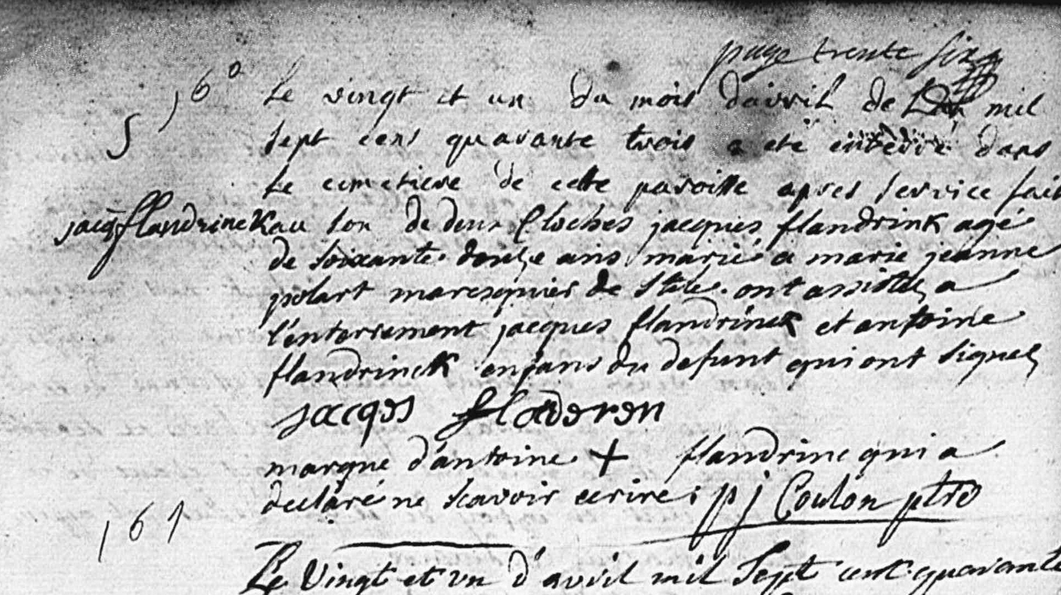 page trente six
160 Le vingt et un du mois d'avril de L'an mil
S sept cens quarante trois a eté enterré dans
Le cimetiere de cette paroisse apres service fait
jacq flandrinck au son de deux Cloches jacques flandrink agé
de soixante douze ans marié a marie jeanne
polart maresquier de stile ont assistez a
l'enterrement jacques flandrinck et antoine
flandrinck enfans du defunt qui ont signez
jacqes fladeren
marque d'antoine + flandrinc qui a
declaré ne scavoir ecrire; pj Coulon ptre
161
Le Vingt et un d'avril mil sept cent quarante